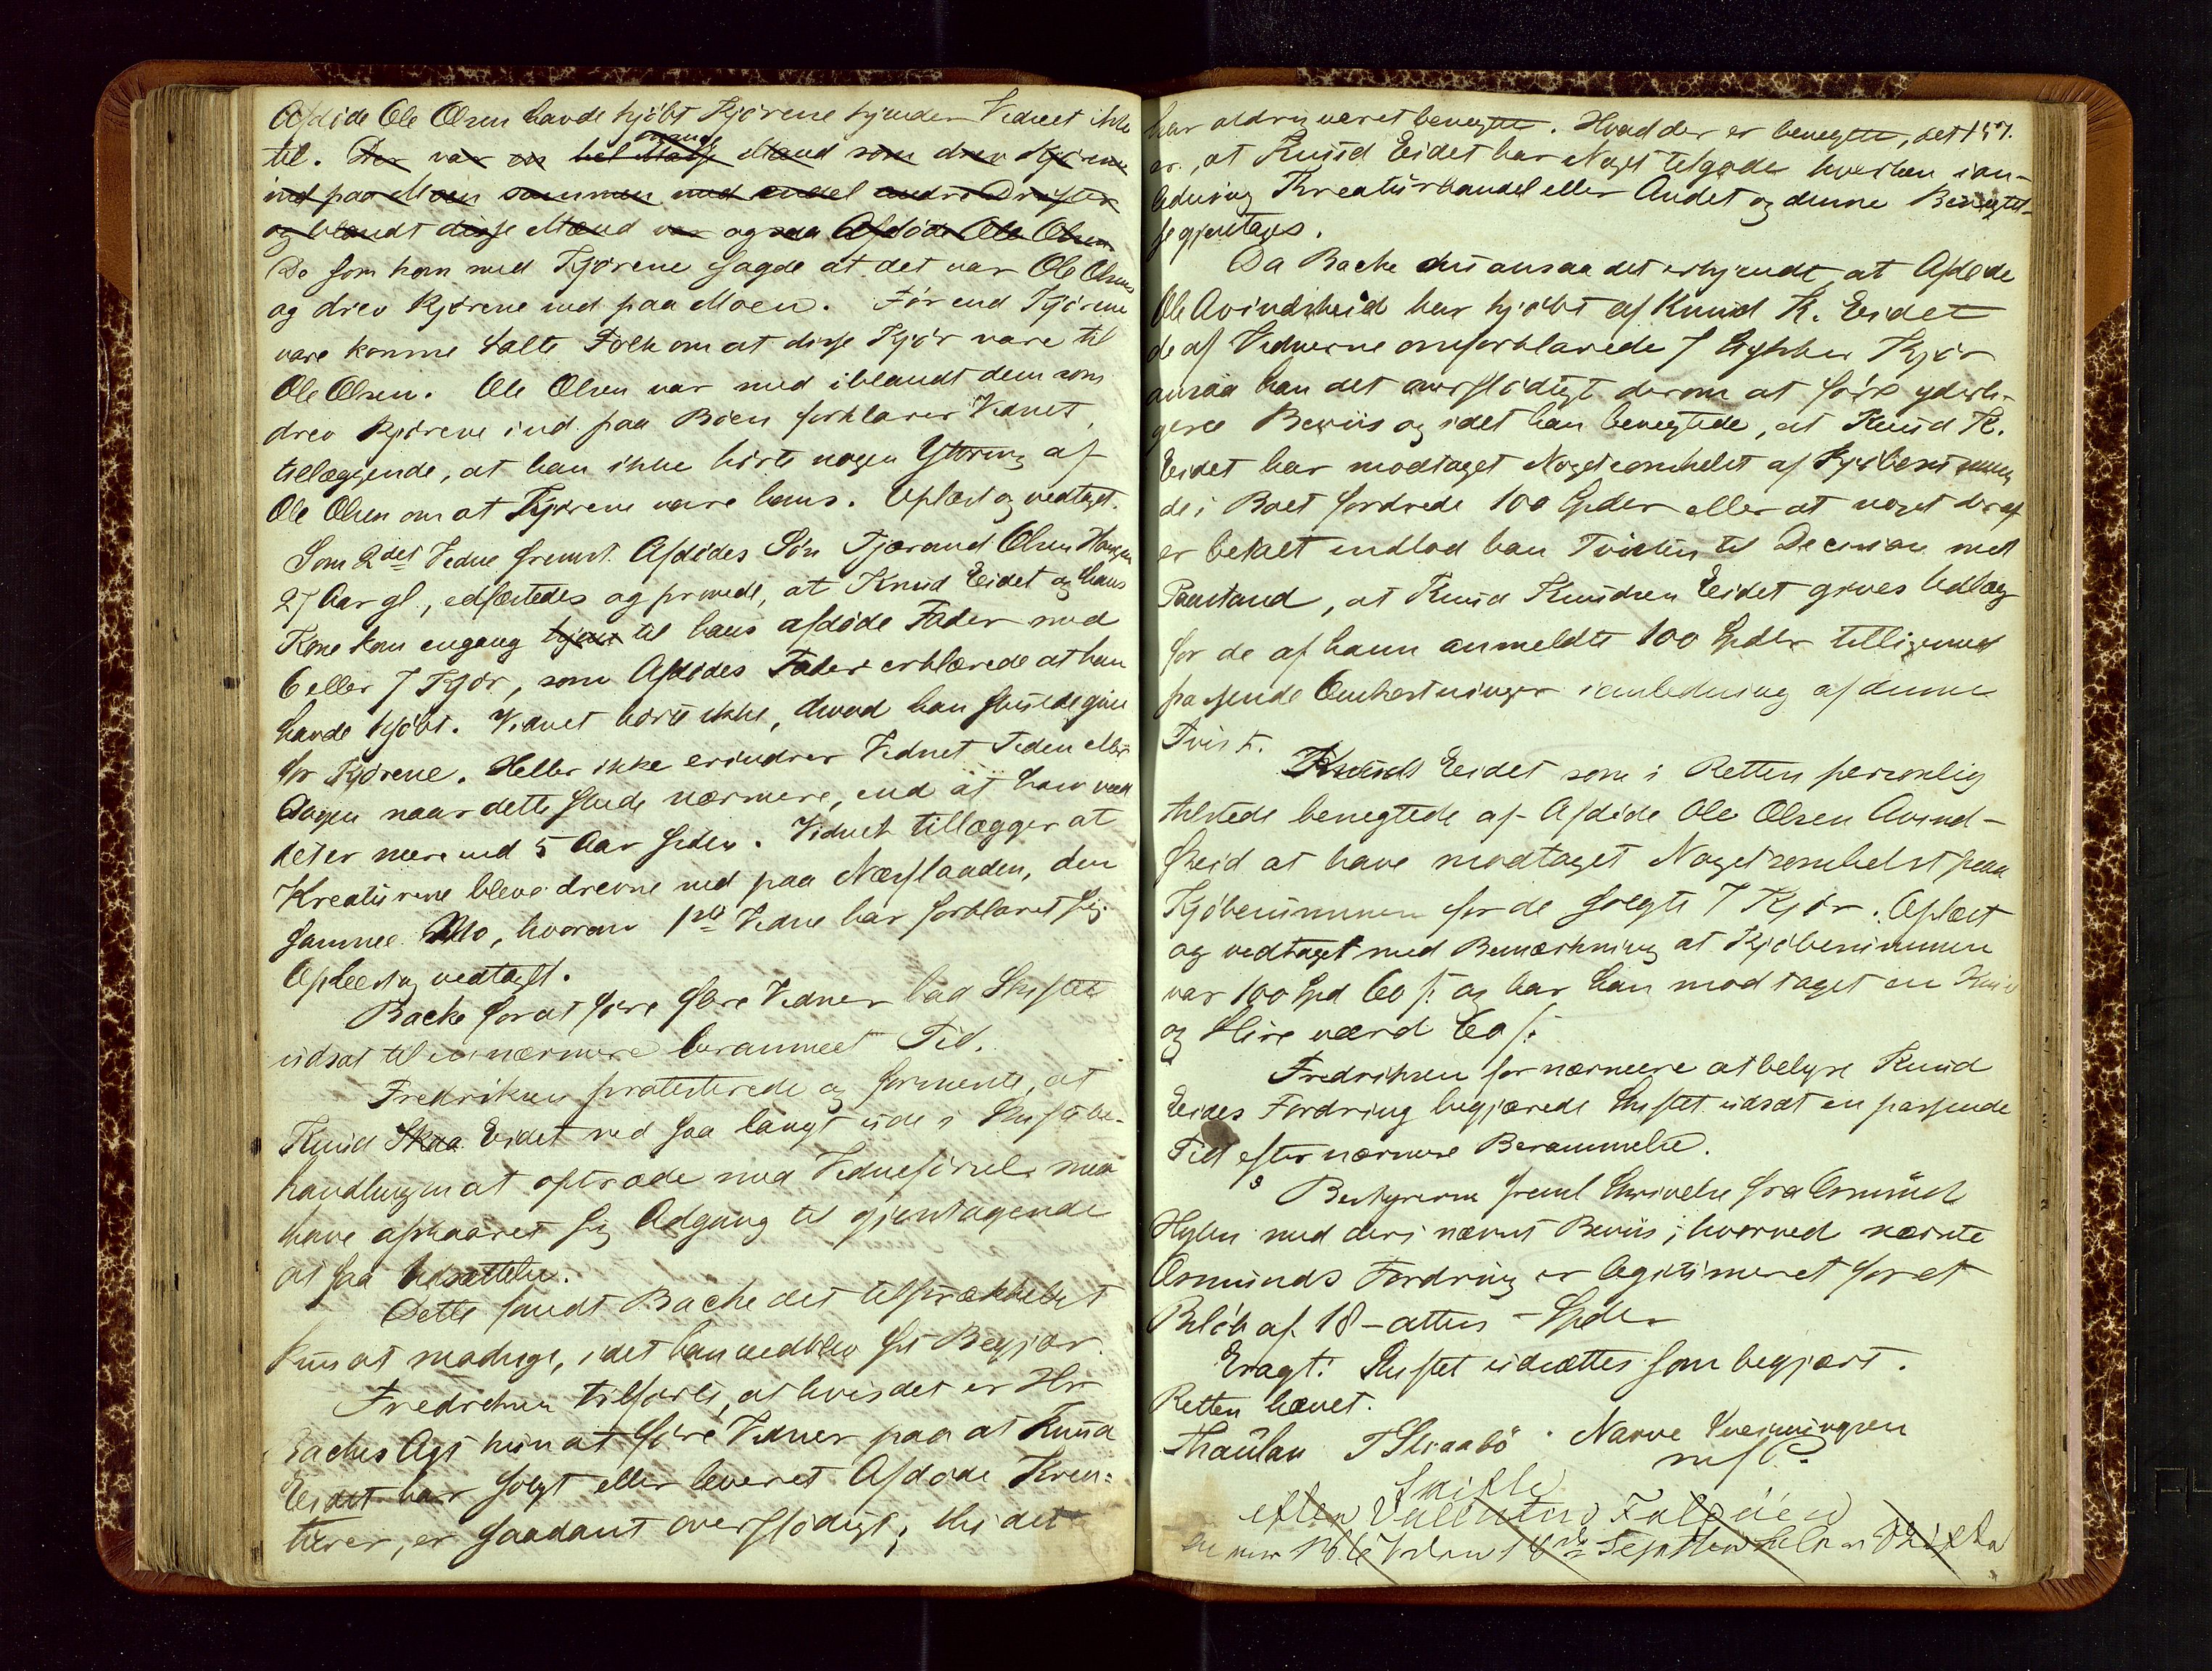 Afdøde Ole Olsen havde kjøbt Kjørene kjender Vidnet ikke
til. Der var en hel Mængde Mænd som drev Kjørene
ind paa Moen sammen med endel andre Drifter
og blandt disse Mænd var ogsaa Afdøde Ole Olsen.
De som kom med Kjørene sagde at det var Ole Olsens
og drev Kjørene ind paa Moen. Før end Kjørene
vare komne talte Folk om at disse Kjør vare til
Ole Olsen. Ole Olsen var med iblandt dem som
drev Kjørene ind paa Böen forklarer Vidnet,
tillæggende, at han ikke hørte nogen Yttring af
Ole Olsen om at Kjørene vare hans. Oplæst og vedtaget.
Som 2det Vidne fremst. Afdødes Søn Tjærand Olsen
27 Aar gl., edfæstedes og prvnede, at Knud Eidet og hans
Kone kom engang hjem til hans afdøde Fader med
6 eller 7 Kjør, som Afdødes Fader erklærede at han
havde kjøbt. Vidnet hørte ikke, hvad han skulde give
for Kjørene. Heller ikke erindrer Vidnet Tiden eller
Dagen naar dette skede nærmere, end at han ved
det er mere end 5 Aar siden. Vidnet tillægger at
Kreaturene bleve drevne ind paa Næsflaaden, den
samme Mo, hvorom 1ste Vidne har forklaret sig.
Oplæst og vedtaget.
Backe for at føre flere Vidner bad Skiftet
udsat til en nærmere berammet Tid.
Fredriksen protesterede og formente, at
Knud Skaa Eidet ved saa langt ude i Skiftebe-
handlingen at optræde med Vidneførsel maa
have afskaaret sig Adgang til gjentagende
at faa Udsættelse.
Dette fandt Backe det tilstrækkeligt
kun at modsige, idet han vedblev sit Begjær.
Fredriksen tilførte, at hvis det er Hr
Backes Agt kun at føre Vidner paa at Knud
Eidet har solgt eller leveret Afdøde Krea-
turer, er saadant overflødigt, thi det
har aldrig været benegtet. Hvad der er benegtet, det 157.
er, at Knud Eidet har Noget tilgode hverken i an-
ledning Kreaturhandel eller Andet og denne Benegtel-
se gjentages.
Da Backe nu ansaa det erkjendt, at Afdøde
Ole Avindskeid har kjøbt af Knud K. Eidet
de af Vidnerne omforklarede 7 Stykker Kjør
ansaa han det overflødigt derom at føre yderli-
gere Beviis og idet han benegtede, at Knud K.
Eidet har modtaget Nogetsomhelst af Kjøbesummen
de i Boet fordrede 100 Spdlr eller at noget deraf
er betalt indlod han Tvisten til Decision med
Paastand, at Knud Knudsen Eidet gives Udlæg
for de af ham anmeldte 100 Spdlr tilligemed
passende Omkostninger i anledning af denne
Tvist.
Knud Eidet som i Retten personlig
tilstede benegtede af Afdøde Ole Olsen Avind-
skeid at have modtaget Nogetsomhelst paa
Kjøbesummen for de solgte 7 Kjør. Oplæst
og vedtaget med Bemærkning at Kjøbesummen
var 100 Spd 60 s: og har han modtaget en Kniv
og Slire værd 60 s:
Fredriksen for nærmere at belyse Knud
Eides Fordring begjærede Skiftet udsat en passende
Tid efter nærmere Berammelse.
Bestyreren freml Skrivelse fra Osmund
Hylen med deri nævnt Beviis, hvorved nævnte
Osmunds Fordring er legitimeret for et
Beløb af 18 – atten – Spdlr
Eragt: Skiftet udsættes som begjært.
Retten hævet.
Thaulau T Straabø Narve Sveinungsen
m f P.
Skifte
efter Valentin
18 September